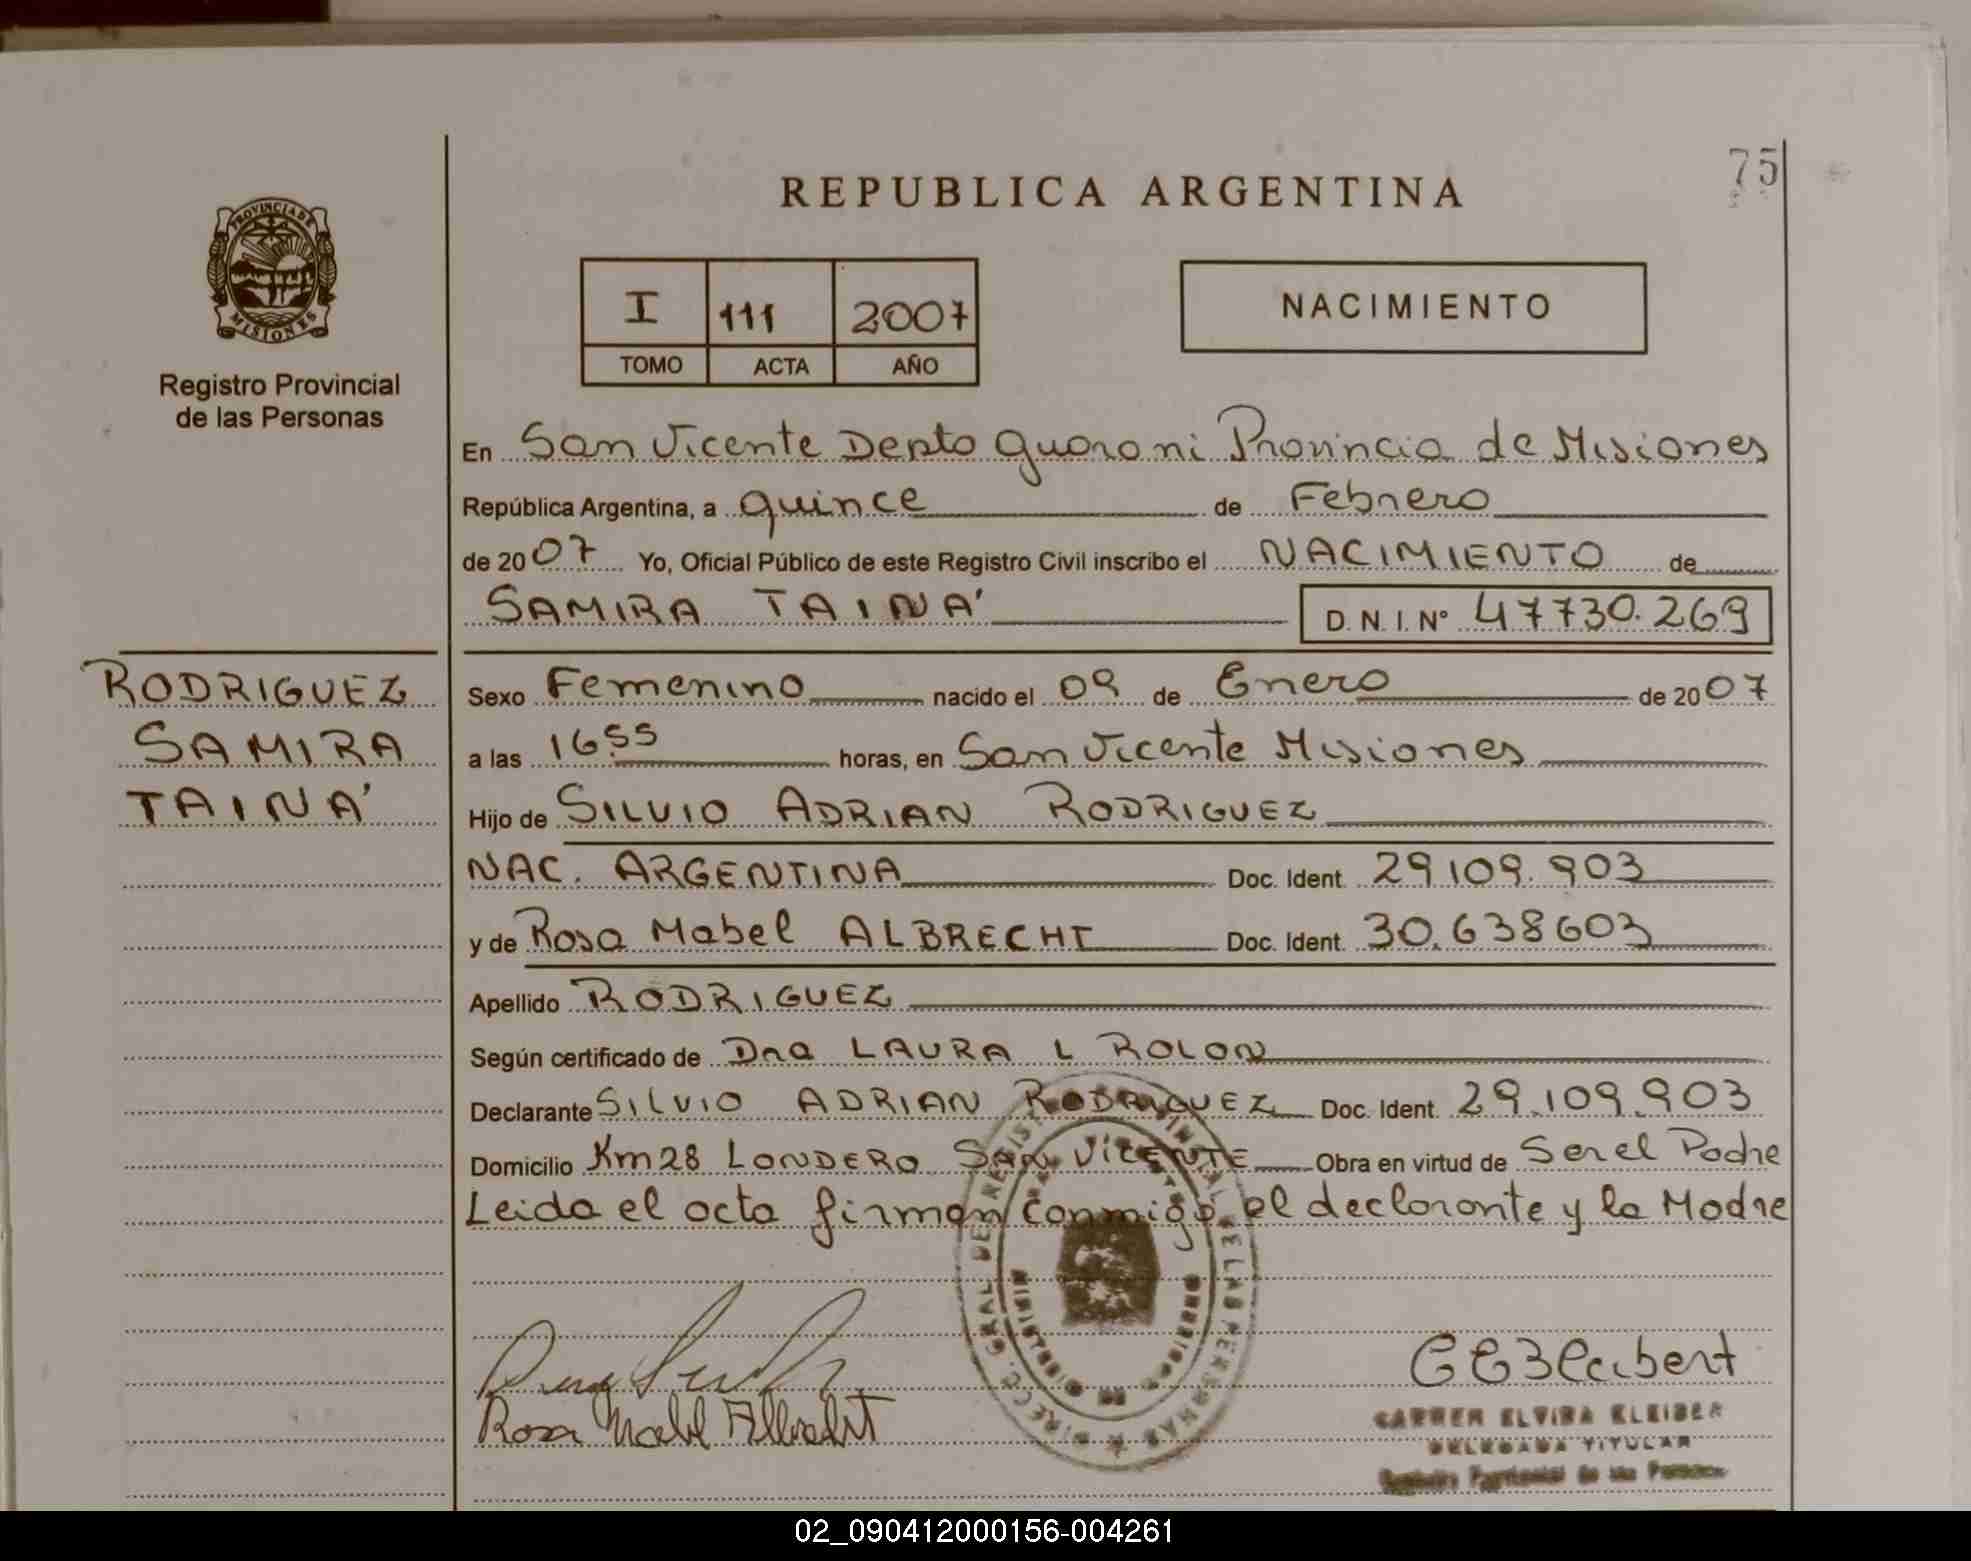 75
REPUBLICA ARGENTINA
PROVINCIA DE
MISIONES
Registro Provincial
de las Personas
I 111 2007
TOMO ACTA AÑO
NACIMIENTO
En San Vicente Depto Guarani Provincia de Misiones
República Argentina, a quince de Febrero
de 2007 Yo, Oficial Público de este Registro Civil inscribo el NACIMIENTO de
SAMIRA TAINÁ D.N.I. Nº 47730.269
RODRIGUEZ
SAMIRA
TAINÁ
Sexo Femenino nacido el 09 de Enero de 2007
a las 16 55 horas, en San Vicente Misiones
Hijo de SILVIO ADRIAN RODRIGUEZ
NAC. ARGENTINA Doc. Ident. 29109.903
y de Rosa Mabel ALBRECHT Doc. Ident. 30.638603
Apellido RODRIGUEZ
Según certificado de Dra LAURA L ROLON
Declarante SILVIO ADRIAN RODRIGUEZ Doc. Ident. 29.109.903
Domicilio Km28 LONDERO SAN VICENTE Obra en virtud de Ser el Padre
Leida el acta firman conmigo el declarante y la Madre
Rosa Mabel Albrecht
CARMEN ELVIRA KLEIBER
DELEGADA TITULAR
Registro Provincial de las Personas
DIRECC. GRAL DE REGISTRO PROVINCIAL DE LAS PERSONAS
02_090412000156-004261